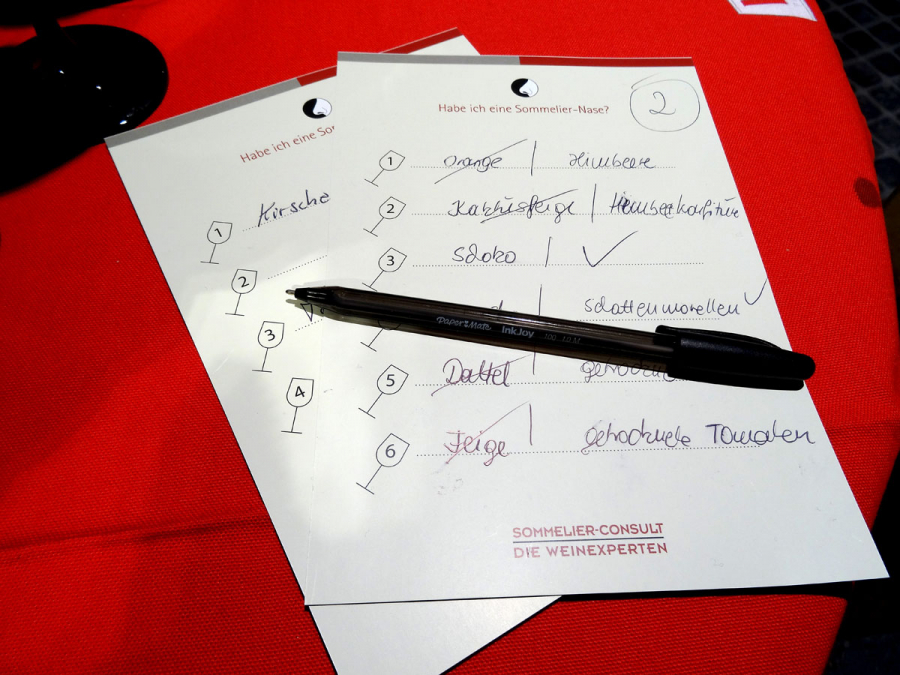 Habe ich eine Sommelier-Nase?
2
1 Orange | Himbeere
2 Kaktusfeige | Himbeerkonfitüre
3 Schoko | ✓
Schattenmorellen ✓
5 Dattel |
6 Feige | getrocknete Tomaten
SOMMELIER-CONSULT
DIE WEINEXPERTEN
Habe ich eine So
1 Kirsche
2
3
4
PaperMate InkJoy 100 1.0 M